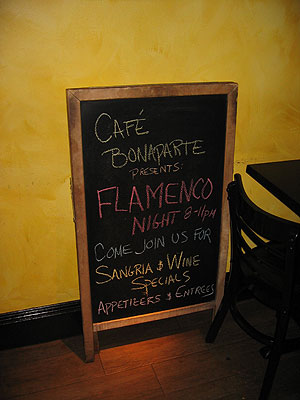 CAFÉ
BONAPARTE
PRESENTS:
FLAMENCO
NIGHT 8-11PM
COME JOIN US FOR
SANGRIA $ WINE
SPECIALS
APPETIZERS $ ENTREES